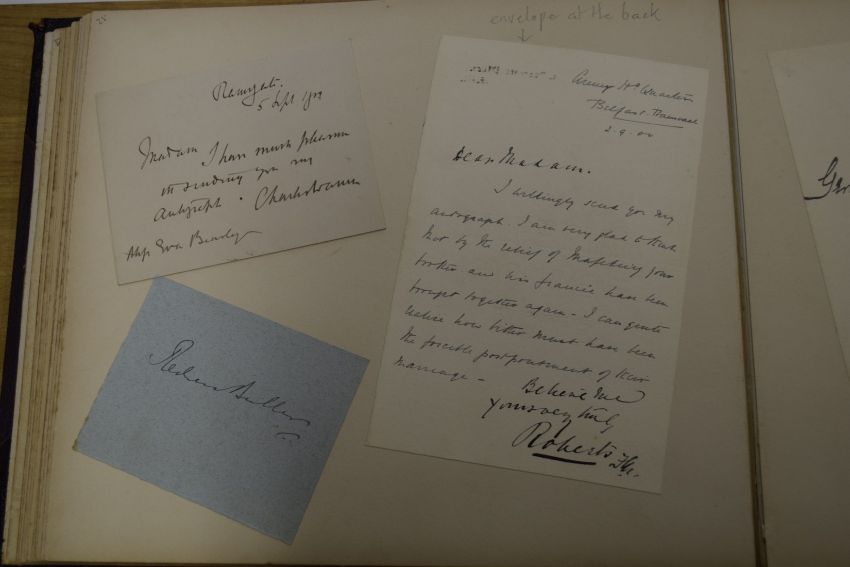 envelope at the back
Ramsgate.
5 Sept
Madam I have much pleasure
in sending you my
autograph.
Miss Eva Beady
Redvers Buller
Army Hd Quarters
Belfast. Transvaal
2.9.00
Dear Madam.
I willingly send you my
autograph. I am very glad to think
that by the relief of Mafeking your
brother and his fiancée have been
brought together again - I can quite
realise how bitter must have been
the forcible postponement of their
marriage -
Believe me
Yours very truly
Roberts
Gr